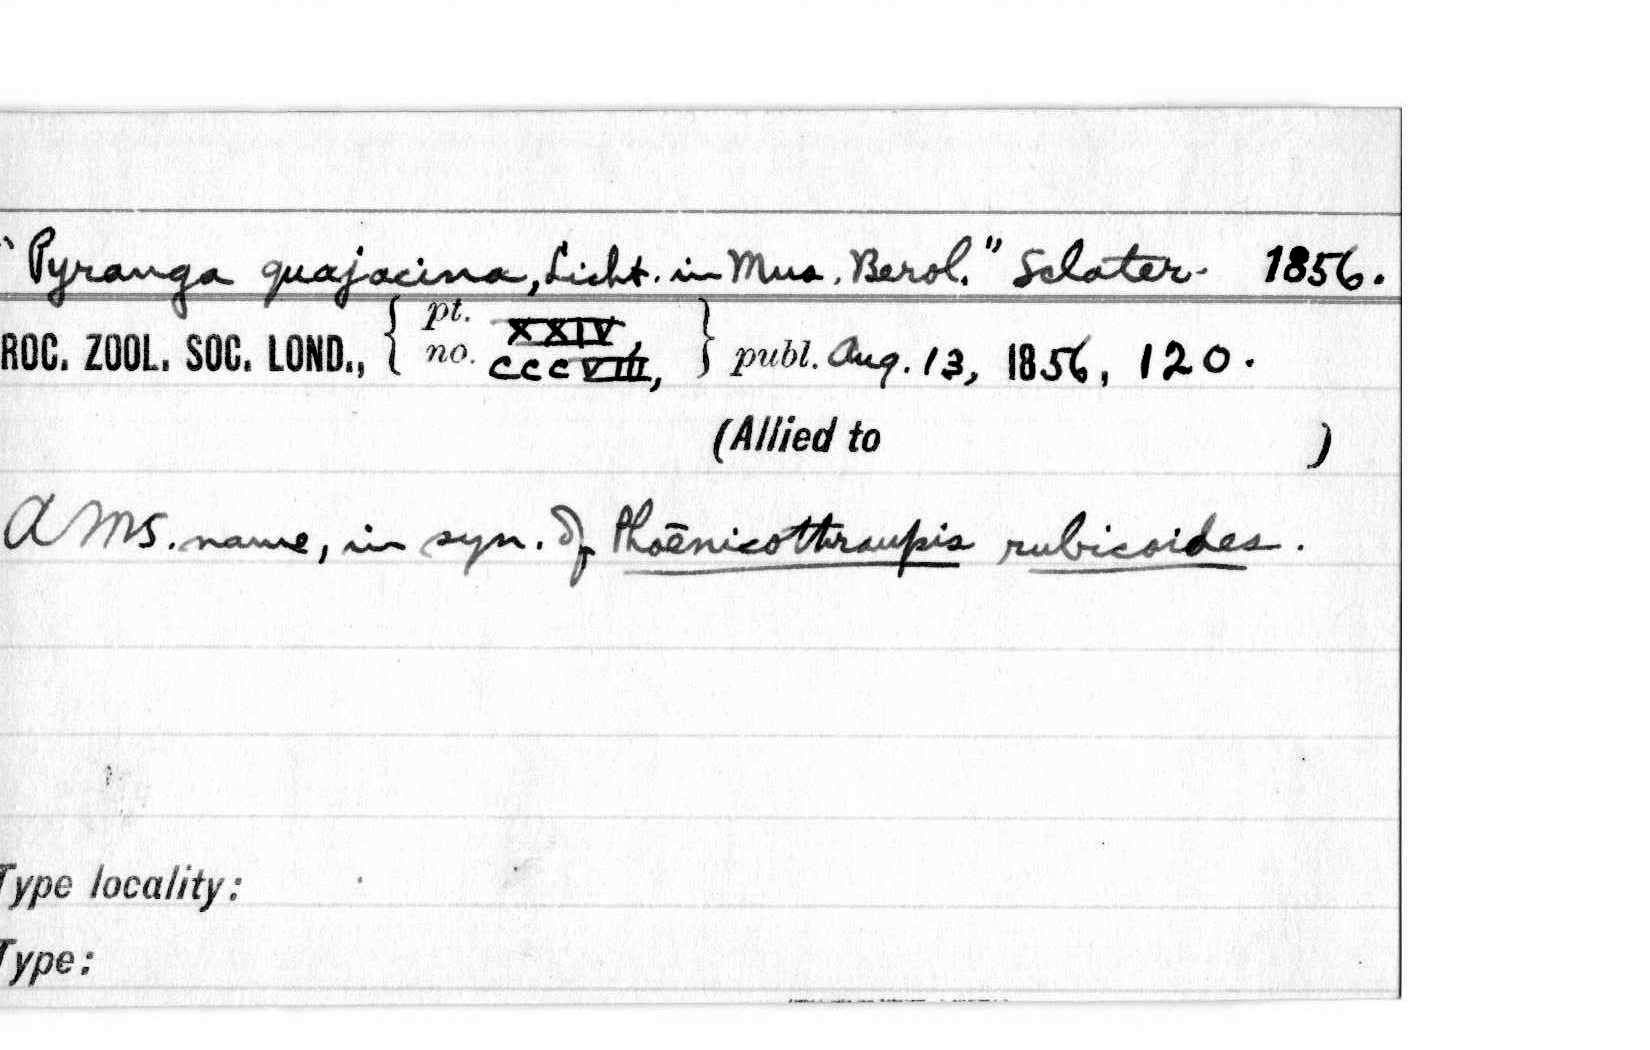 "Pyranga quajacina, Licht. in Mus. Berol." Sclater 1856.
ROC. ZOOL. SOC. LOND., { pt. XXIV,
no. CCCVIII, } publ. Aug. 13, 1856, 120.
(Allied to )
A MS. name, in syn. of Phoenicothraupis rubicoides.
Type locality:
Type: